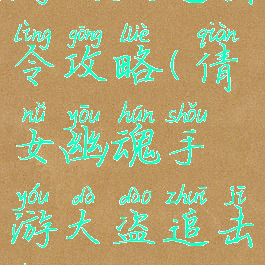 lìng gōng lüè qiàn
令攻略(倩
nǚ yōu hún shǒu
女幽魂手
yóu dà dào zhuī jī
游大盗追击